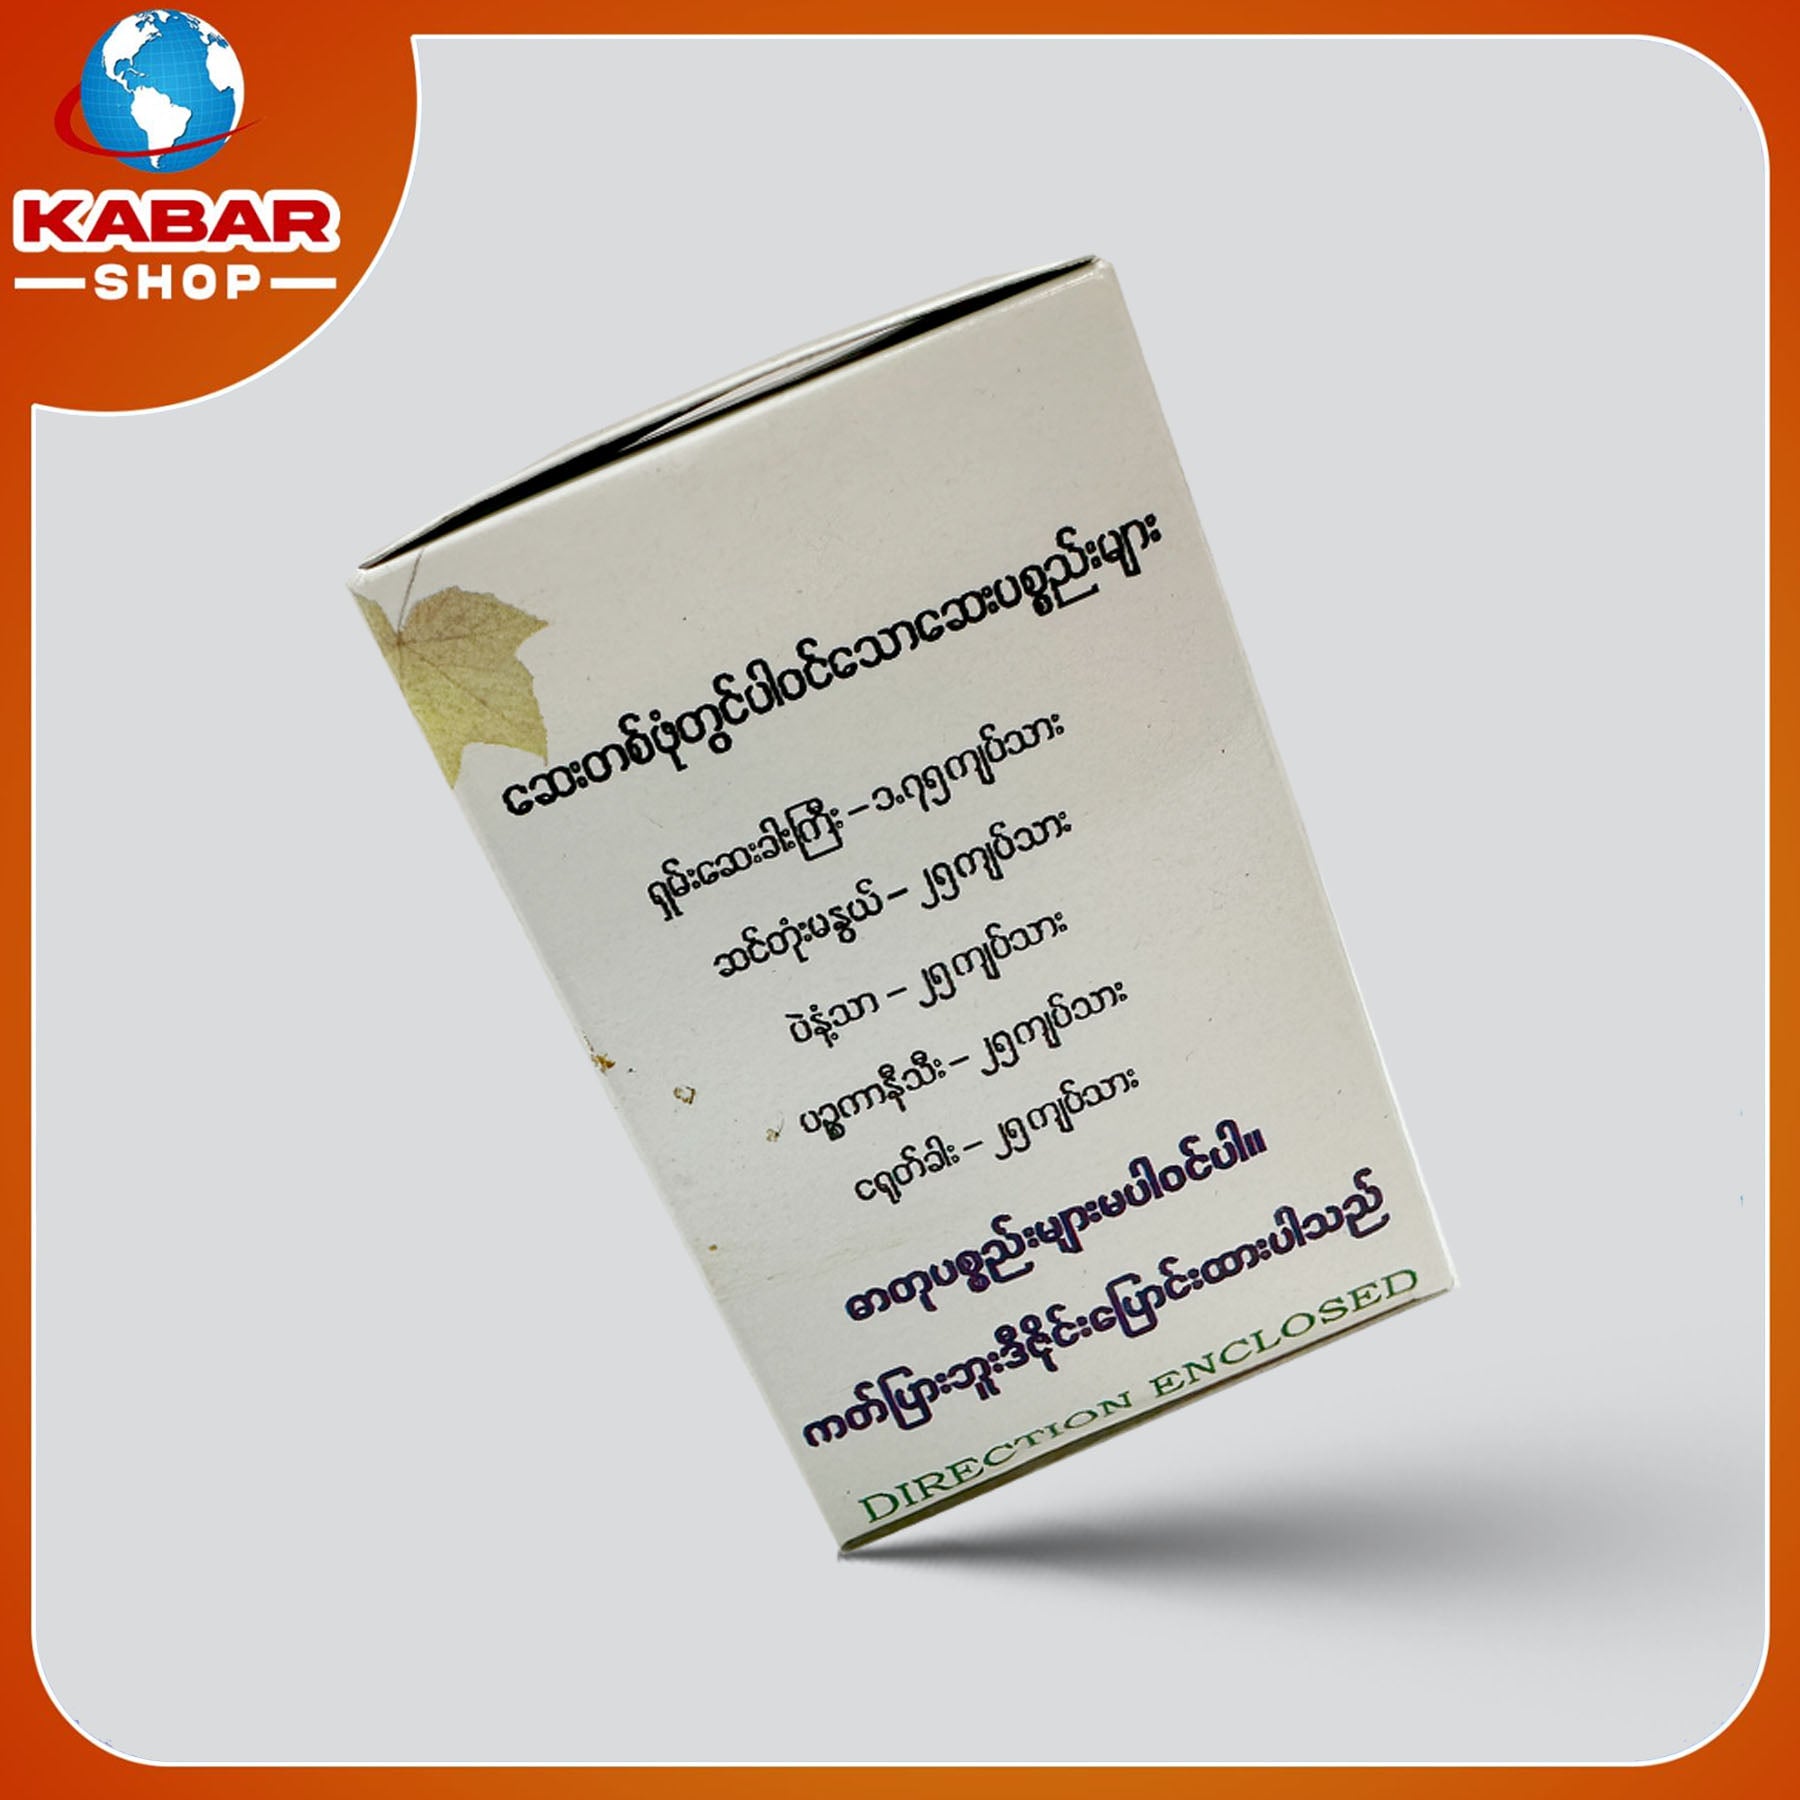 KABAR
SHOP
ဆေးတစ်ဖုံတွင်ပါဝင်သောဆေးပစ္စည်းများ
ရှမ်းဆေးခါးကြီး – ၁.၇၅ကျပ်သား
ဆင်တုံးမနွယ် – ၂၅ကျပ်သား
ပဲနံ့သာ – ၂၅ကျပ်သား
ပဉ္စကာနီသီး – ၂၅ကျပ်သား
ငရုတ်ခါး – ၂၅ကျပ်သား
ဓာတုပစ္စည်းများမပါဝင်ပါ။
ကတ်ပြားဘူးဒီဇိုင်းပြောင်းထားပါသည်
DIRECTION ENCLOSED